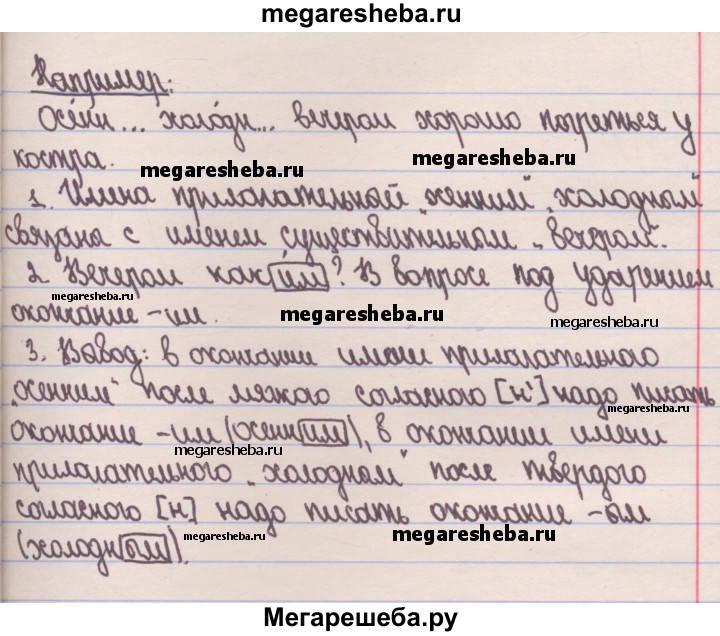 megaresheba.ru
Например:
Осенн... холодн... вечером хорошо погреться у
костра.
megaresheba.ru
megaresheba.ru
1. Имена прилагательной "женний" "холодным"
связаны с именем существительном "вечером".
2. Вечером каким? В вопросе под ударением
megaresheba.ru
окончание -им.
megaresheba.ru
megaresheba.ru
3. Вывод: в окончании имени прилагательного
"осенним" после мягкого согласного [н'] надо писать
megaresheba.ru
окончание -им (осенним), в окончании имени
megaresheba.ru
прилагательного "холодном" после твердого
согласного [н] надо писать окончание -ым
(холодным).
megaresheba.ru
megaresheba.ru
Мегарешеба.ру